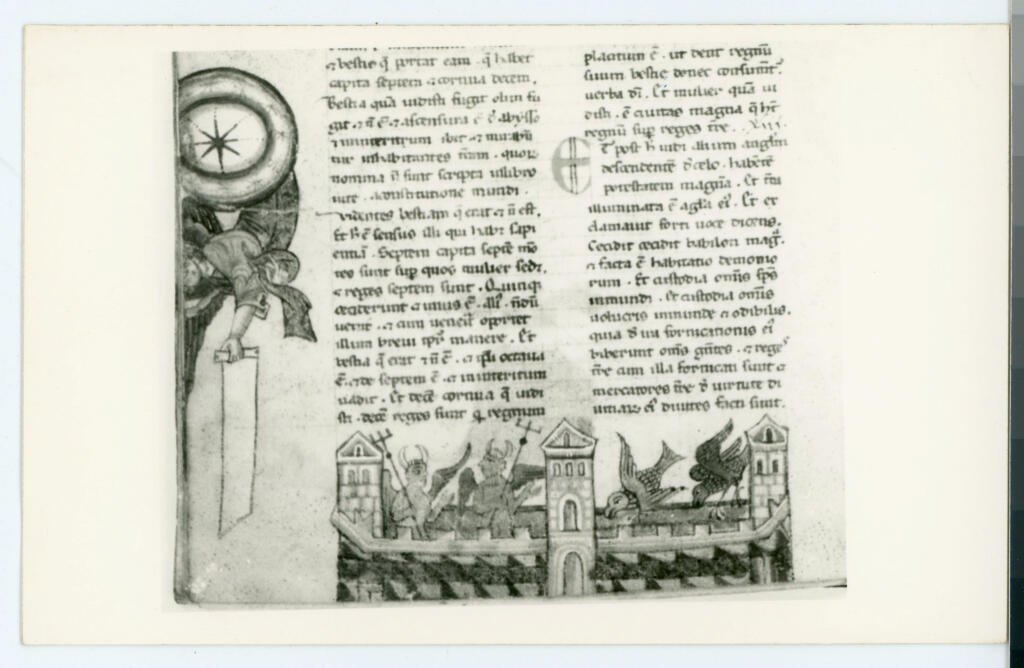 & bestie q̃ portat eam. q̃ habet
capita septem & cornua decem.
Bestia quã uidisti fuit
&
& in interitum ibit. & mirabũ
tur inhabitantes trãm. quoꝝ
nomina ñ sunt scripta in libro
uite. a constitutione mundi.
uidentes bestiam q̃ erat & ñ est.
Et h̃ ẽ sensus illi qui habꝫ sapi
entiã. Septem capita septẽ mõ
tes sunt sup quos mulier sedꝫ.
& reges septem sunt. Quinqꝫ
ceciderunt & unus ẽ. ali᷒. ñdũ
uenit. & cum ueneit᷒ oportet
illum breui tp̃s manere. Et
bestia q̃ erat & ñ ẽ. & ip̃a octaua
ẽ. & de septem ẽ. & in interitum
uadit. Et decẽ cornua q̃ uidi
sti. decẽ reges sunt q̃ regnum
placitum ẽ. ut dent regnũ
suum bestie donec consumẽt᷒.
uerba dĩ. Et mulier quã ui
disti. ẽ ciuitas magna q̃ ht̃
regnũ sup reges tr̃e.
Et post h̃ uidi alium anglm̃
descendentẽ d̃ celo. habẽtẽ
potestatem magnã. Et tr̃a
illuminata ẽ a gl̃a ei᷒. Et ex
clamauit forti uoce dicens.
Cecidit cecidit babilon mag᷒.
& facta ẽ habitatio demonio
rum. Et custodia om̃is sp̃s
inmundi. Et custodia om̃is
uolucris inmunde & odibilis.
quia d̃ ira fornicationis ei᷒
biberunt om̃s gñtes. & rege᷒
tr̃e cum illa fornicati sunt &
mercatores tr̃e d̃ uirtute di
uitiaꝝ ei᷒ diuites facti sunt.